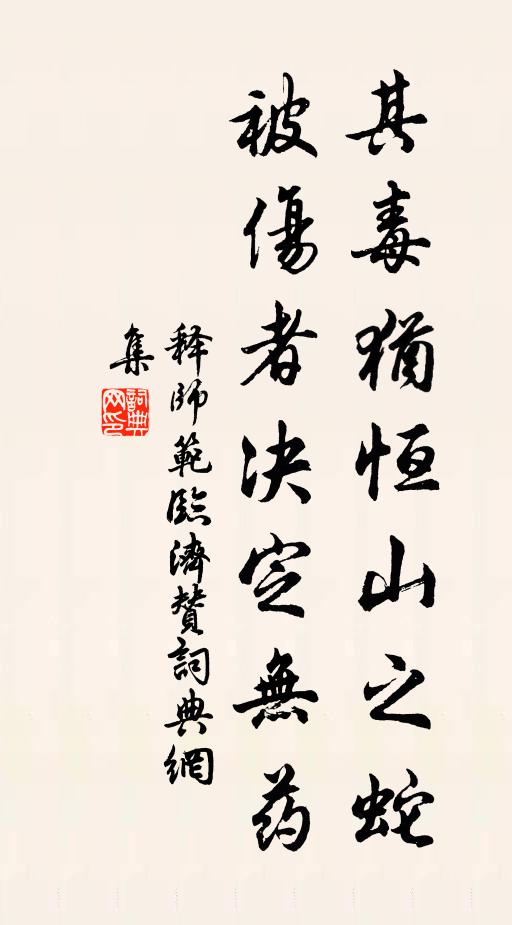 其毒猶恒山之蛇
被傷者决定無药
释師範臨濟賛詞典網
集
詞典网印